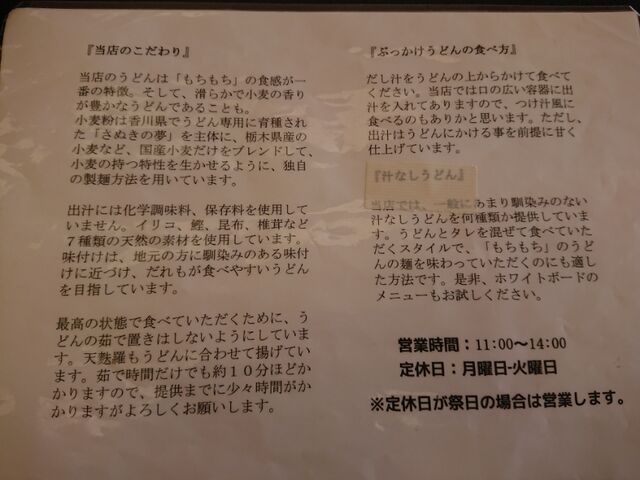 『当店のこだわり』
当店のうどんは「もちもち」の食感が一
番の特徴。そして、滑らかで小麦の香り
が豊かなうどんであることも。
小麦粉は香川県でうどん専用に育種され
た「さぬきの夢」を主体に、栃木県産の
小麦など、国産小麦だけをブレンドして、
小麦の持つ特性を生かせるように、独自
の製麺方法を用いています。
出汁には化学調味料、保存料を使用して
いません。イリコ、鰹、昆布、椎茸など
7種類の天然の素材を使用しています。
味付けは、地元の方に馴染みのある味付
けに近づけ、だれもが食べやすいうどん
を目指しています。
最高の状態で食べていただくために、う
どんの茹で置きはしないようにしていま
す。天麩羅もうどんに合わせて揚げてい
ます。茹で時間だけでも約10分ほどか
かりますので、提供までに少々時間がか
かりますがよろしくお願いします。
『ぶっかけうどんの食べ方』
だし汁をうどんの上からかけて食べて
ください。当店では口の広い容器に出
汁を入れてありますので、つけ汁風に
食べるのもありかと思います。ただし、
出汁はうどんにかける事を前提に甘く
仕上げています。
『汁なしうどん』
当店では、一般にあまり馴染みのない
汁なしうどんを何種類か提供していま
す。うどんとタレを混ぜて食べていた
だくスタイルで、「もちもち」のうど
んの麺を味わっていただくのにも適し
た方法です。是非、ホワイトボードの
メニューもお試しください。
営業時間：11:00～14:00
定休日：月曜日-火曜日
※定休日が祭日の場合は営業します。